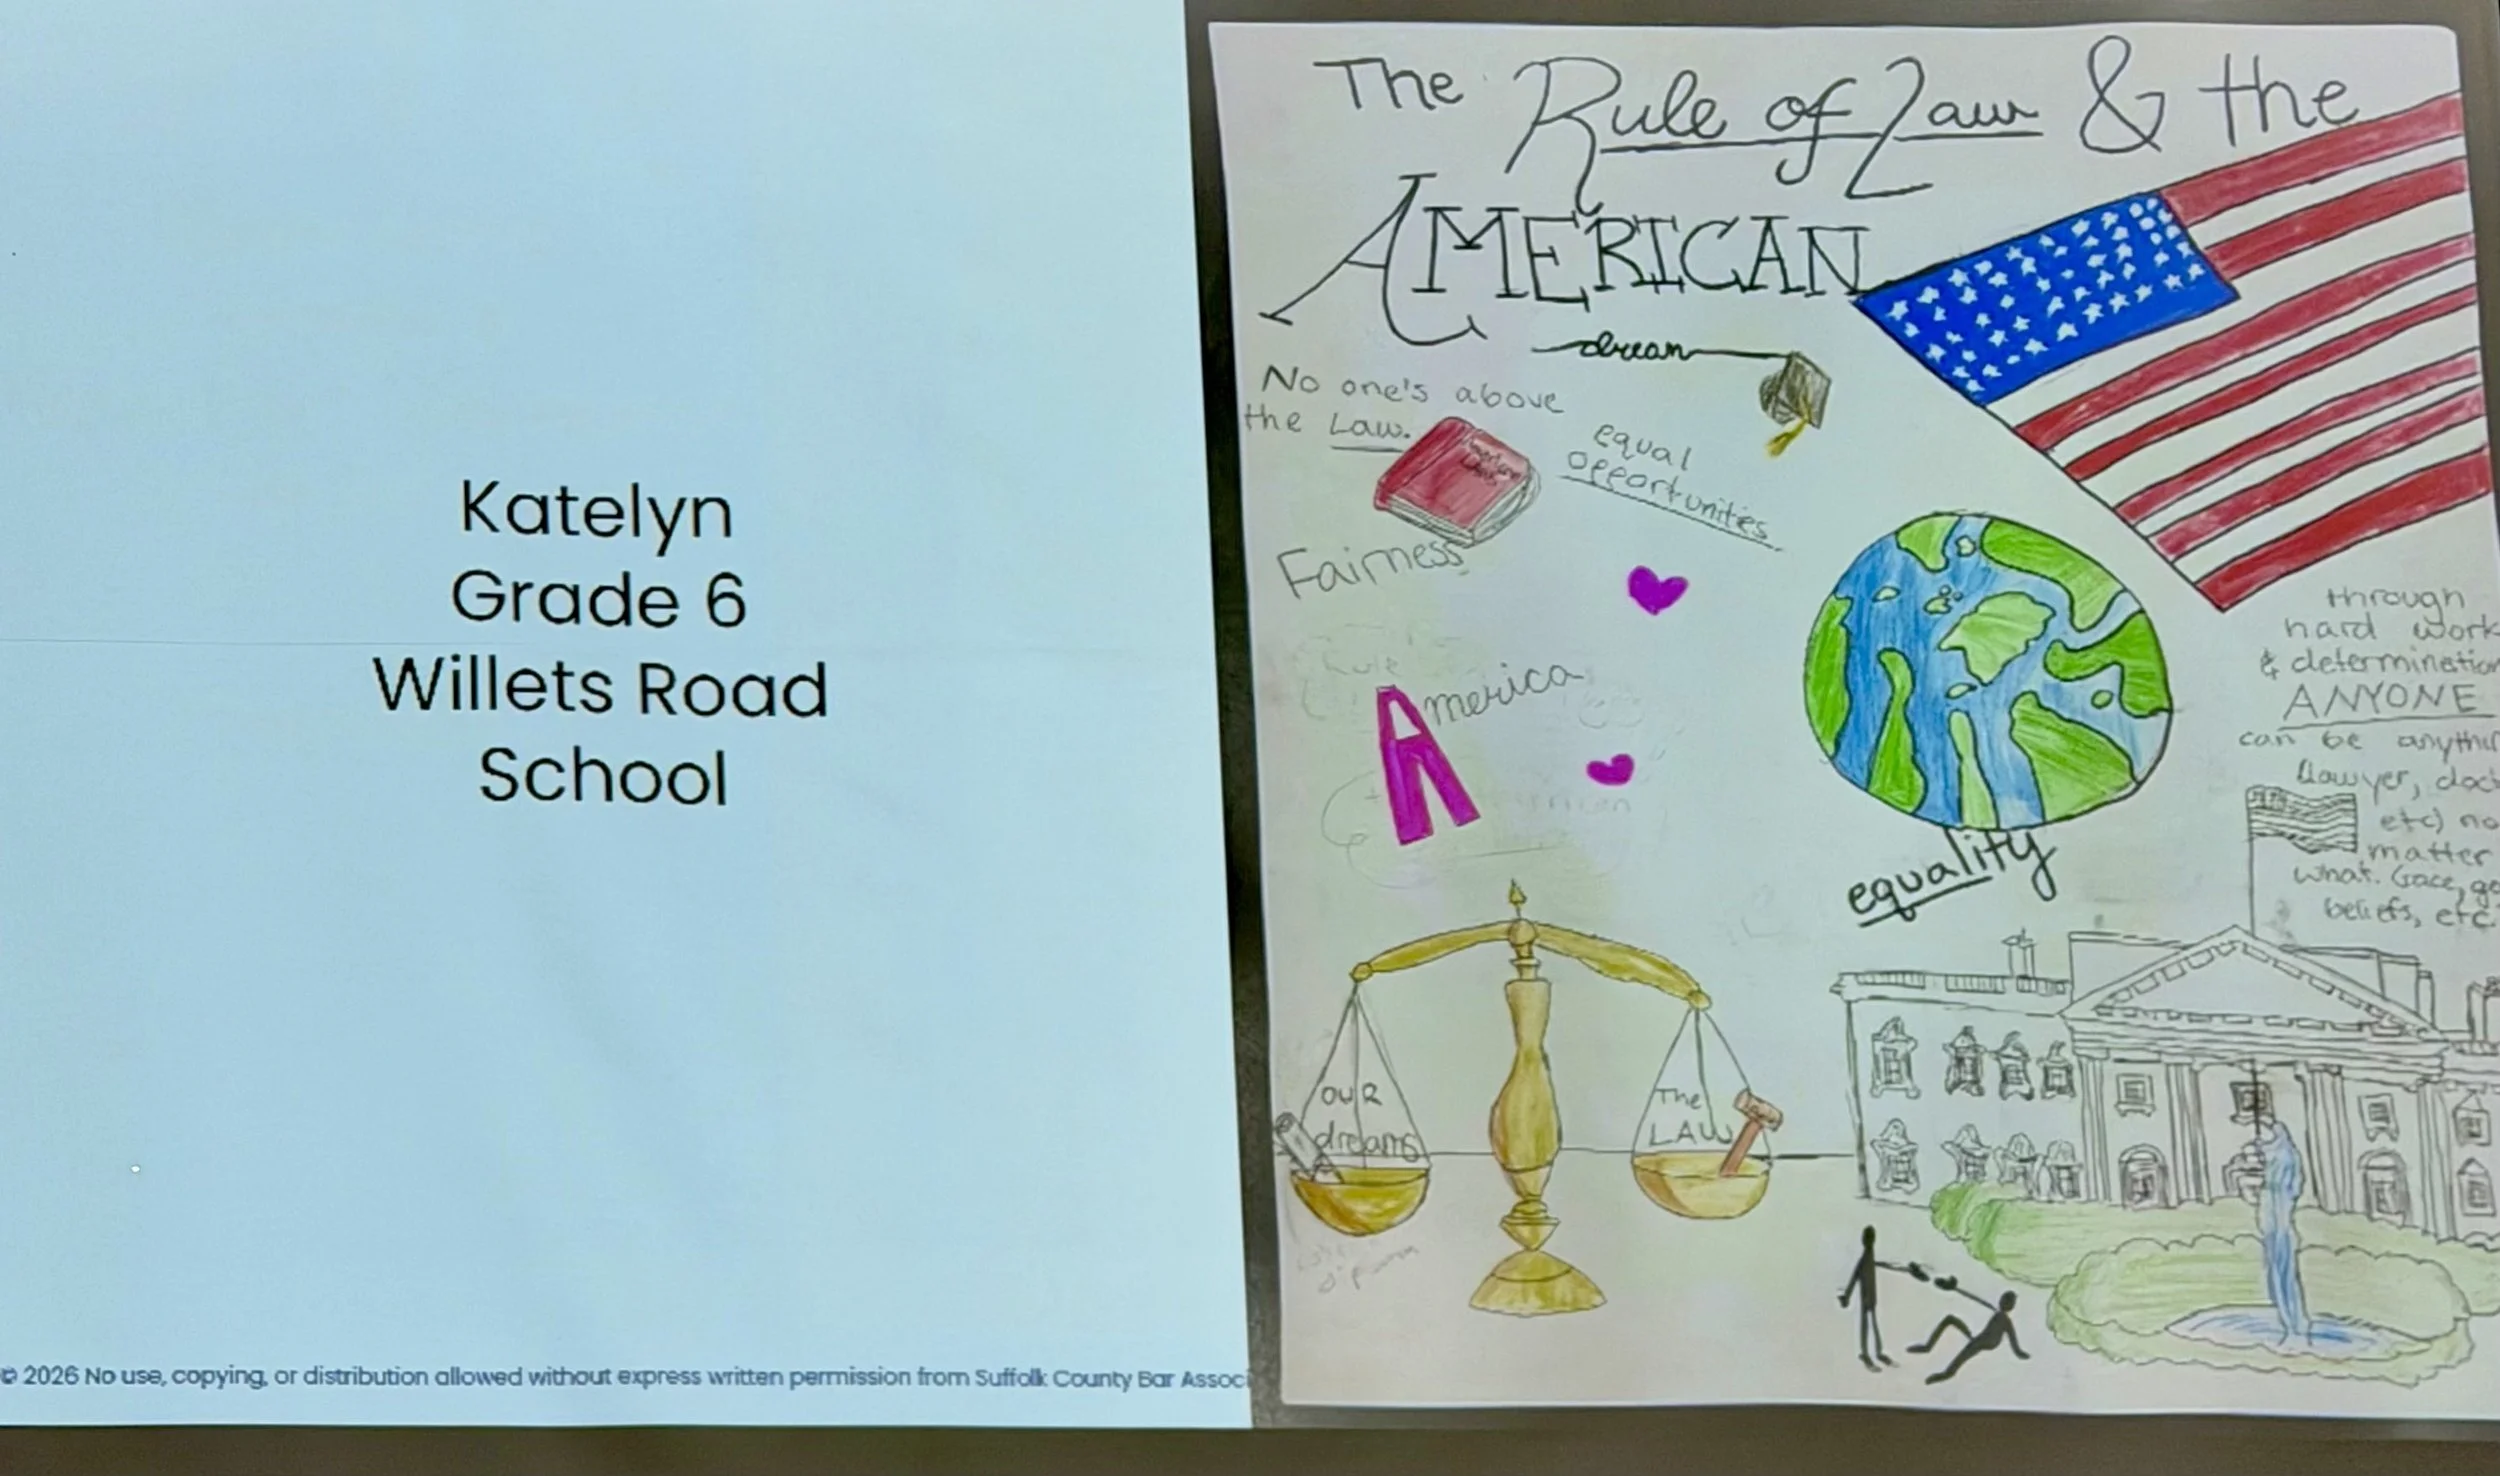 Katelyn
Grade 6
Willets Road
School
© 2026 No use, copying, or distribution allowed without express written permission from Suffolk County Bar Associ
The Rule of Law & the
AMERICAN
dream
No one's above
the Law.
American
Laws
equal
opportunities
Fairness
America
through
hard work
& determination
ANYONE
can be anythin
(lawyer, doct
etc) no
matter
what. (race, ge
beliefs, etc.
equality
OUR
dreams
The
LAW